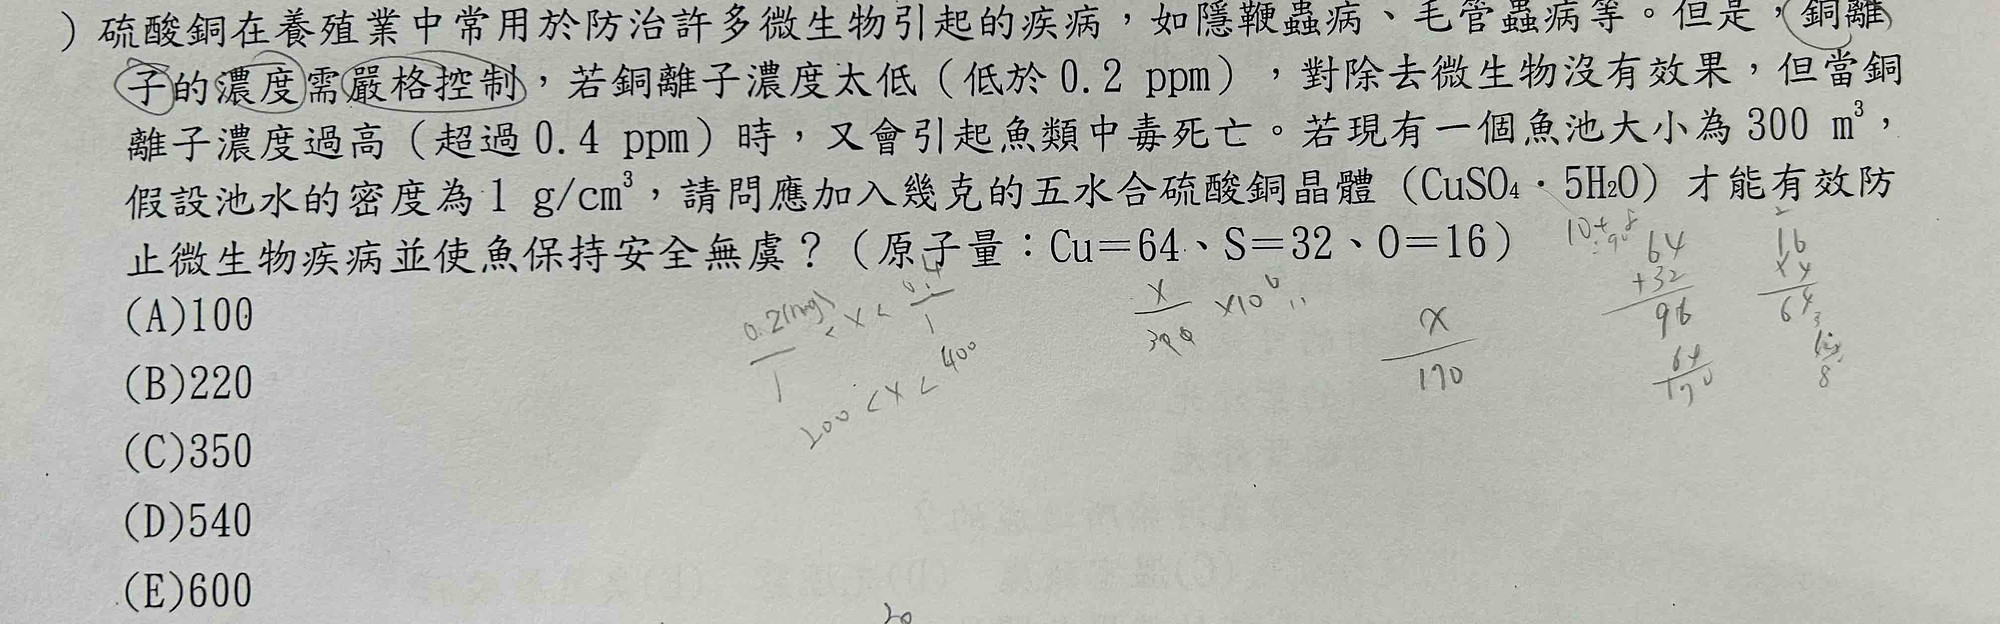 ) 硫酸銅在養殖業中常用於防治許多微生物引起的疾病，如隱鞭蟲病、毛管蟲病等。但是，銅離
子的濃度需嚴格控制，若銅離子濃度太低（低於0.2 ppm），對除去微生物沒有效果，但當銅
離子濃度過高（超過0.4 ppm）時，又會引起魚類中毒死亡。若現有一個魚池大小為300 m³，
假設池水的密度為1 g/cm³，請問應加入幾克的五水合硫酸銅晶體（CuSO₄・5H₂O）才能有效防
止微生物疾病並使魚保持安全無虞？（原子量：Cu＝64、S＝32、O＝16）
(A)100
(B)220
(C)350
(D)540
(E)600
0.2(mg)
1
< x <
0.4
1
200 < x < 400
x
300
×10⁶
x
170
64
+32
96
64
170
16
×4
64
8
20